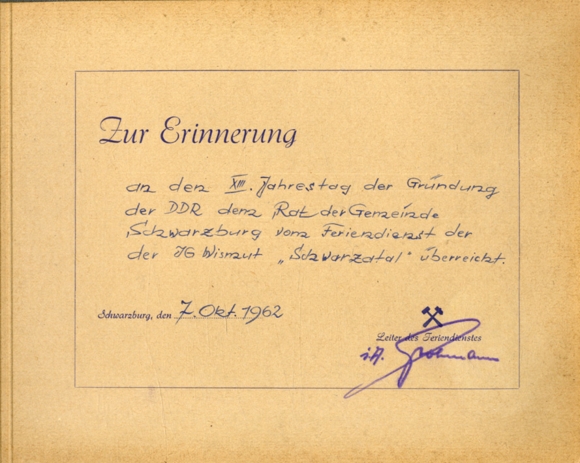 Zur Erinnerung
an den XIII. Jahrestag der Gründung
der DDR dem Rat der Gemeinde
Schwarzburg vom Feriendienst der
der IG Wismut „Schwarzatal" überreicht.
Schwarzburg, den 7. Okt. 1962
Leiter des Feriendienstes
i.A.